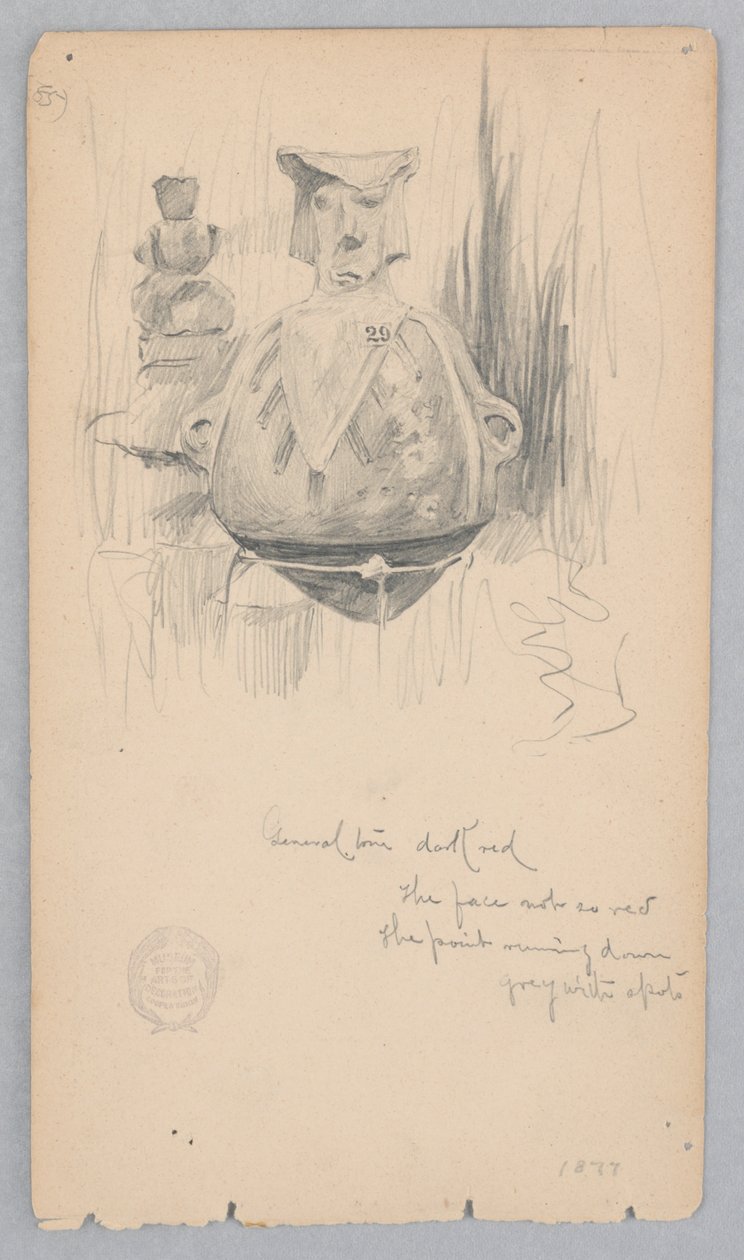 55)
29
General tone dark red
the face not so red
the point running down
grey with spots
MUSEUM
FOR THE
ARTS OF
DECORATION
COOPER UNION
1877